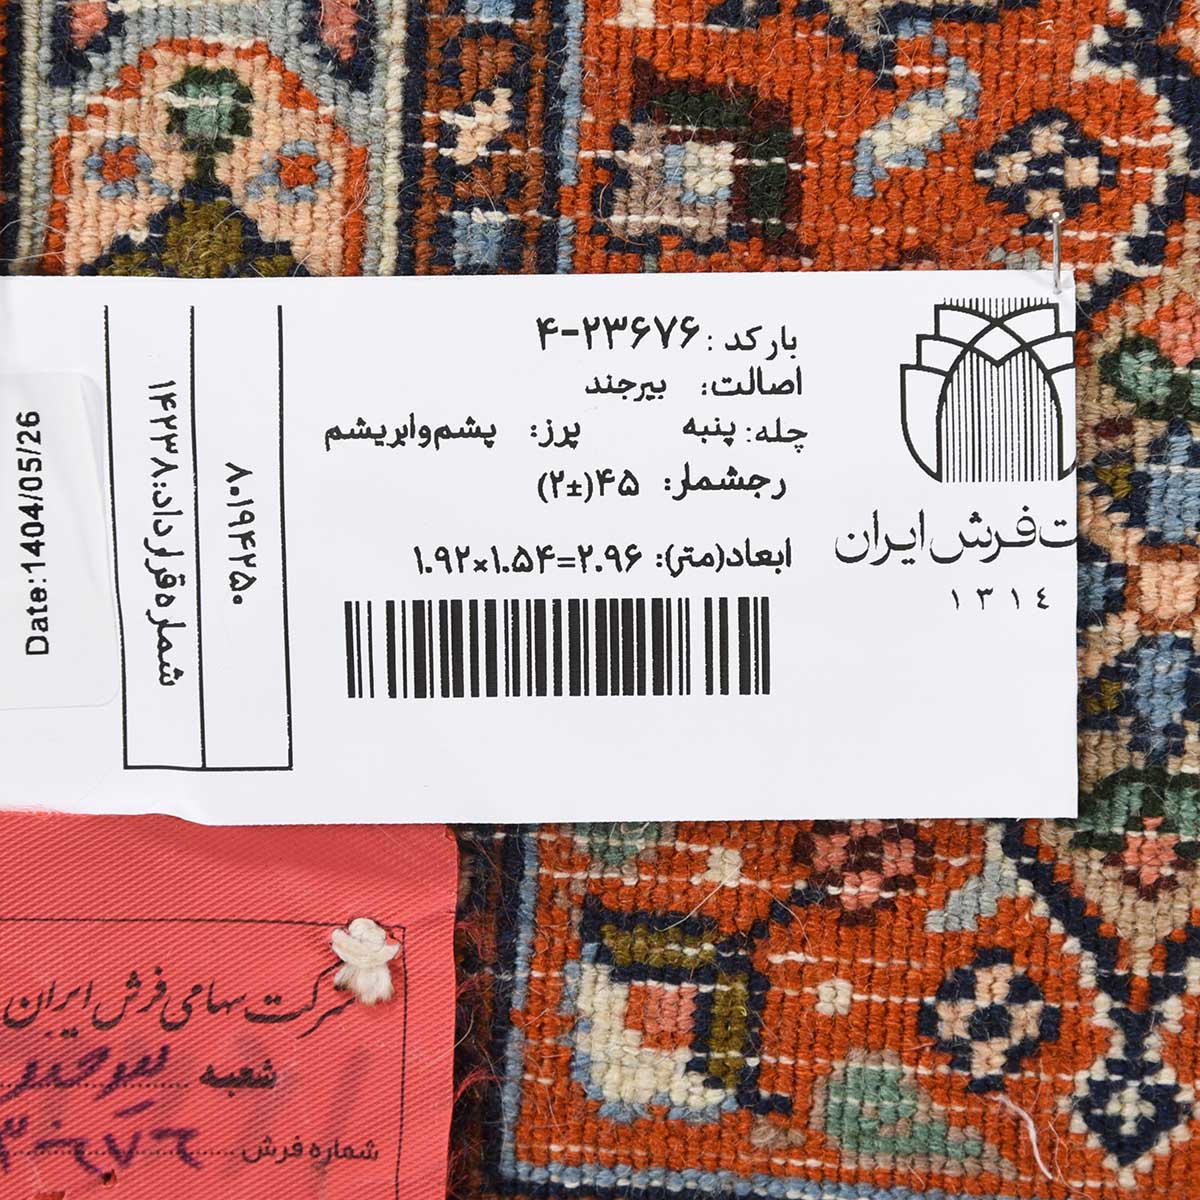 بارکد: ۴-۲۳۶۷۶
اصالت: بیرجند
چله: پنبه پرز: پشم‌وابریشم
رجشمار: ۴۵(±۲)
ابعاد(متر): ۱.۹۲×۱.۵۴=۲.۹۶
ت فرش ایران
۱۳۱٤
شماره قرارداد: ۱۴۲۳۸
۸۰۱۹۴۲۵۰
Date:1404/05/26
شرکت سهامی فرش ایران
شعبه بیرجند
شماره فرش